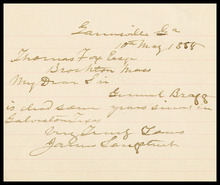 Gainesville Ga
10th May 1888
Thomas Fox Esqr
Brockton Mass
My Dear Sir
General Bragg
is dead some years since in
Galveston Texas
Very Truly Yours
James Longstreet